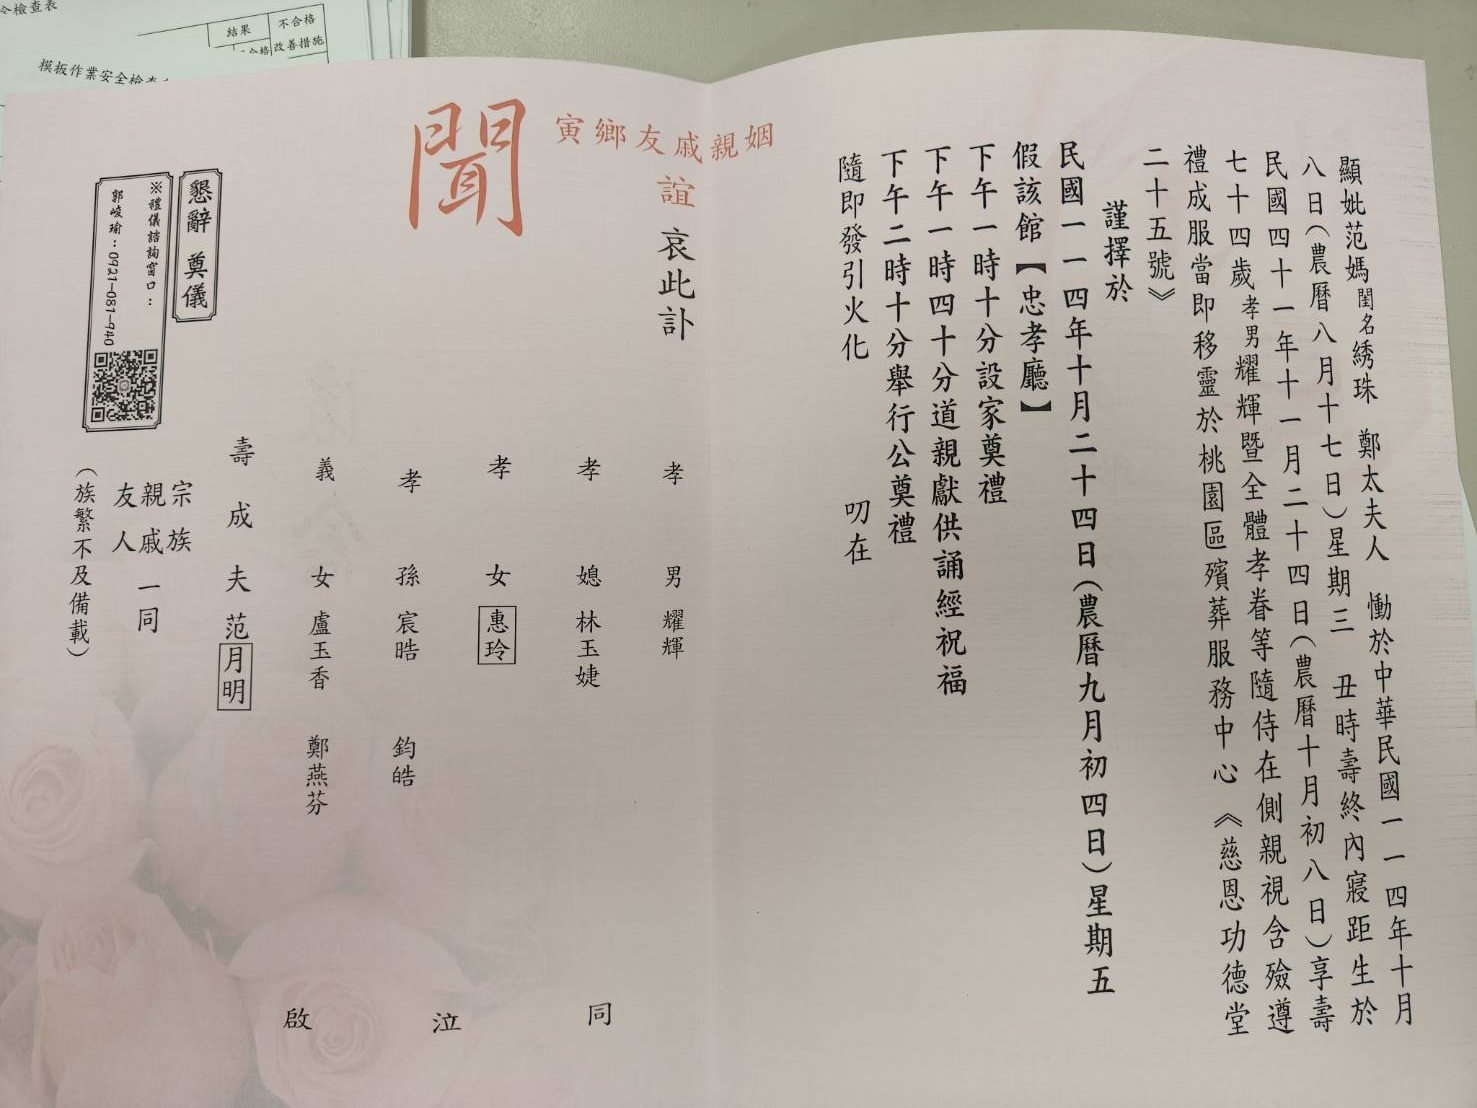 顯妣范媽閨名綉珠 鄭太夫人 慟於中華民國一一四年十月
八日(農曆八月十七日)星期三 丑時壽終內寢距生於
民國四十一年十一月二十四日(農曆十月初八日)享壽
七十四歲孝男耀輝暨全體孝眷等隨侍在側親視含殮遵
禮成服當即移靈於桃園區殯葬服務中心《慈恩功德堂
二十五號》
謹擇於
民國一一四年十月二十四日(農曆九月初四日)星期五
假該館【忠孝廳】
下午一時十分設家奠禮
下午一時四十分道親獻供誦經祝福
下午二時十分舉行公奠禮
隨即發引火化 叨在
姻親戚友鄉寅
誼 哀此訃
聞
孝 男 耀輝
孝 媳 林玉婕
孝 女 惠玲
孝 孫 宸晧 鈞皓
義 女 盧玉香 鄭燕芬
壽成夫 范月明
宗族
親戚一同
友人
(族繁不及備載)
同 泣 啟
懇辭 奠儀
※禮儀諮詢窗口:
郭峻瑜:0921-081-940
全檢查表
結果
不合格
改善措施
合格
模板作業安全檢查